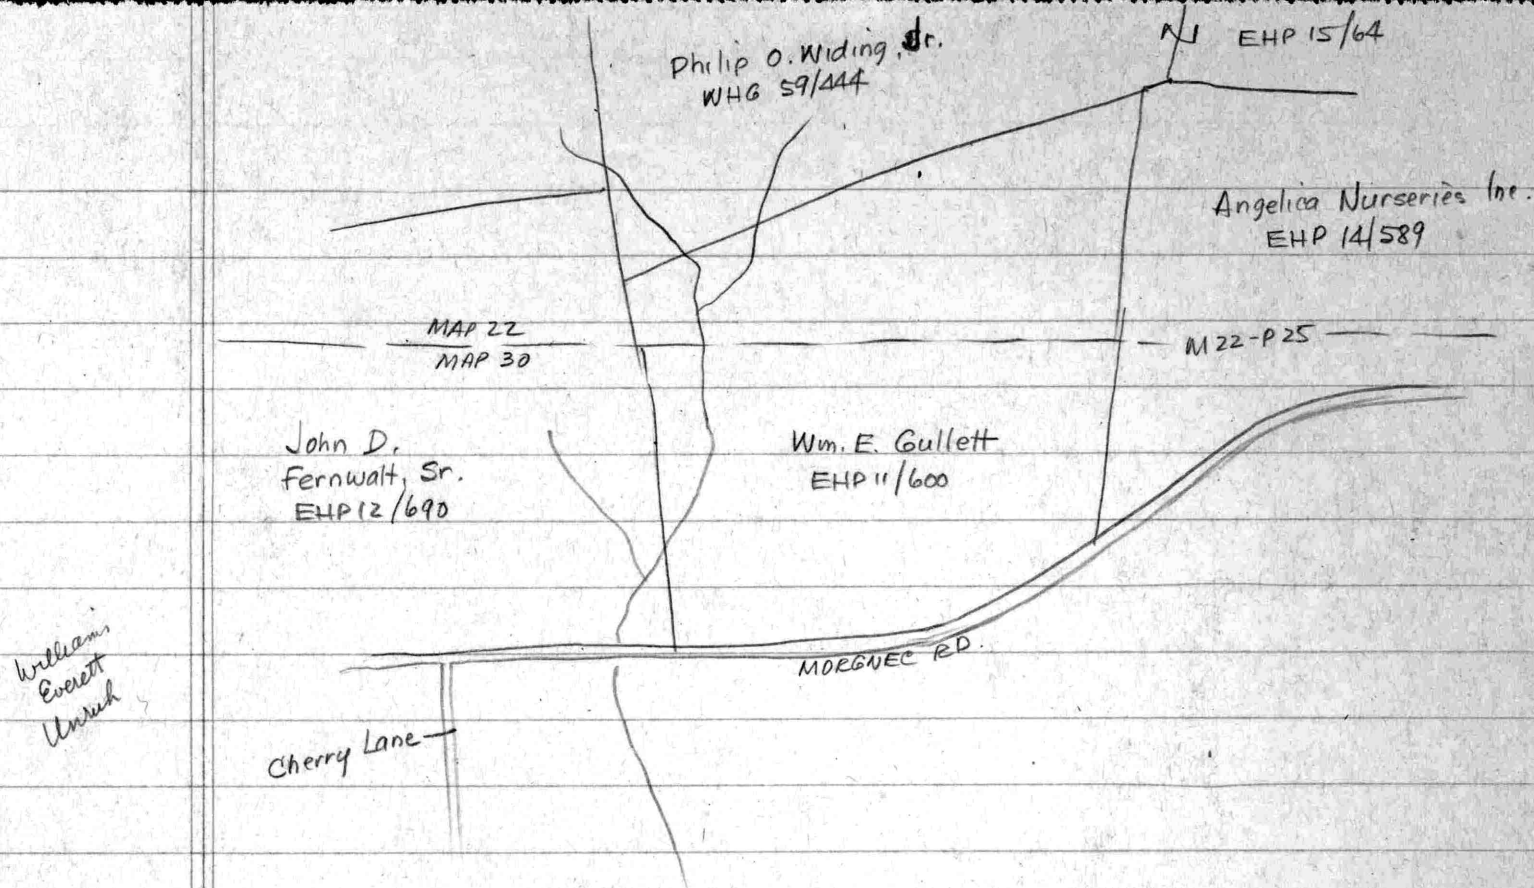 Philip O. Widing, Jr.
WHG 59/444
N
EHP 15/64
Angelica Nurseries Inc.
EHP 14/589
MAP 22
MAP 30
M 22-P 25
John D.
Fernwalt, Sr.
EHP 12/690
Wm. E. Gullett
EHP 11/600
MORGNEC RD.
Williams
Everett
Unruh
Cherry Lane